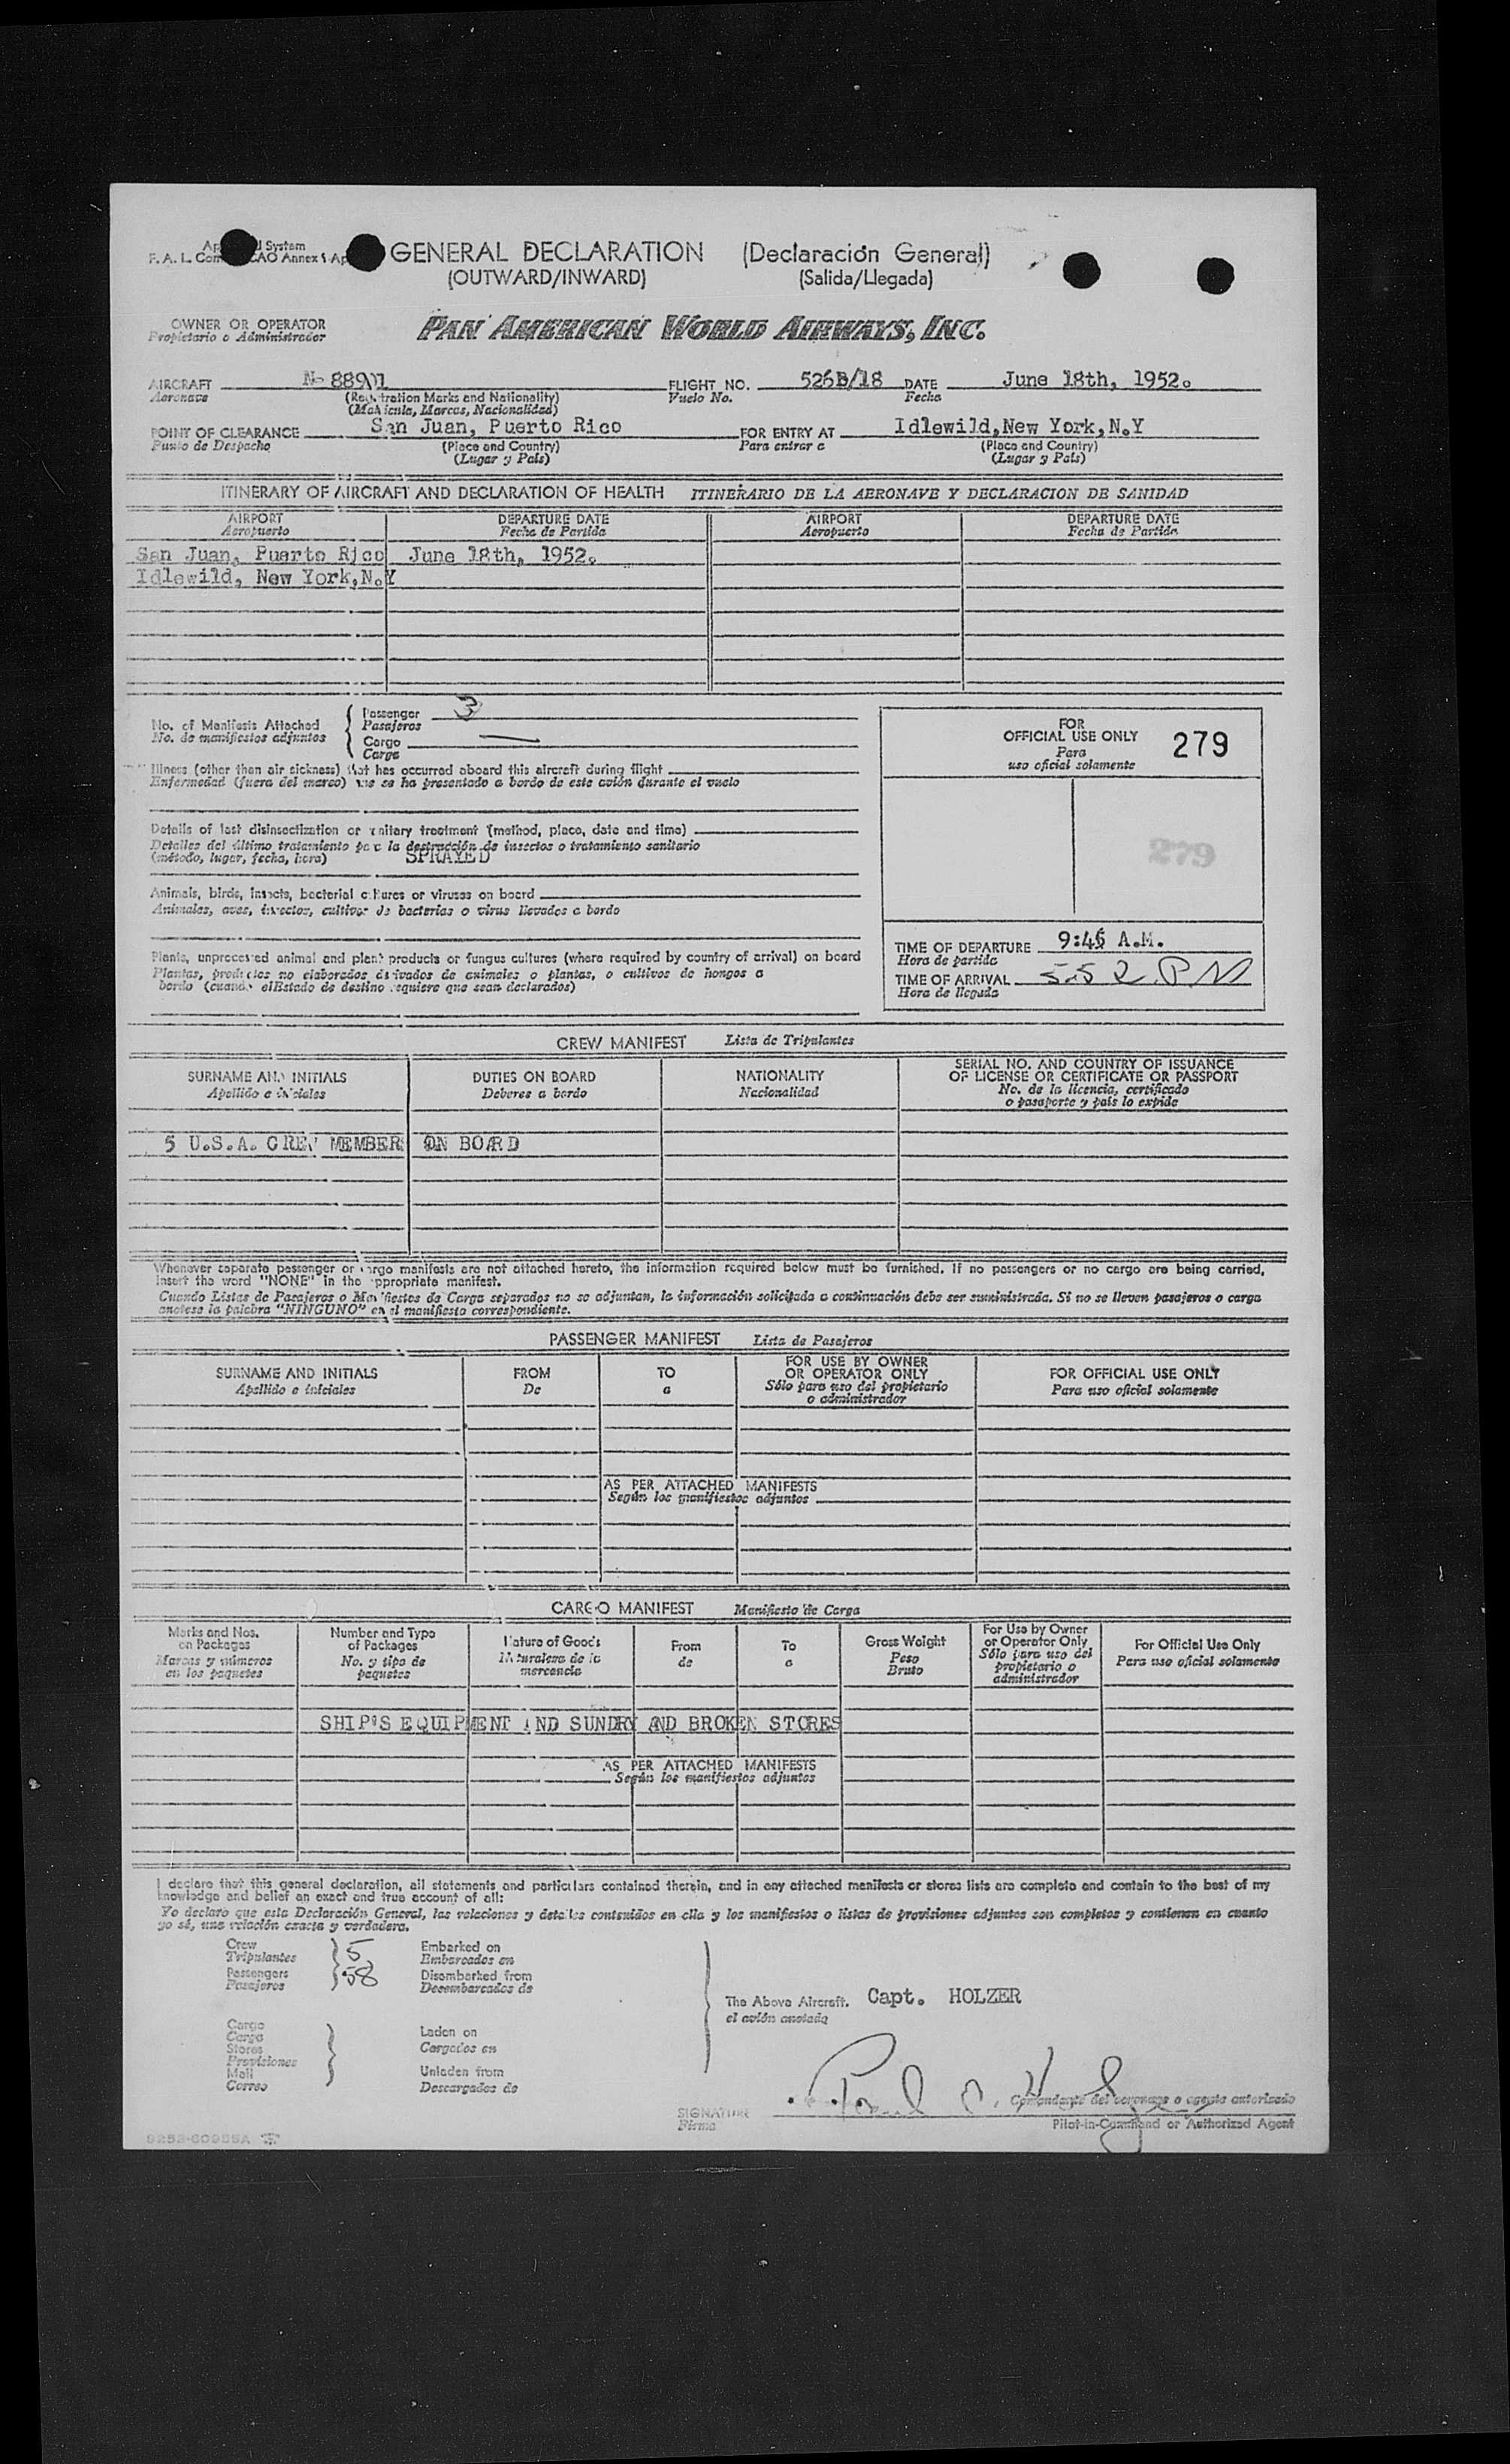 GENERAL DECLARATION (Declaración General)
(OUTWARD/INWARD) (Salida/Llegada)
System
F. A. L. Annex
OWNER OR OPERATOR PAN AMERICAN WORLD AIRWAYS, INC.
Propietario o Administrador
AIRCRAFT FLIGHT NO. 526B/18 DATE June 18th, 1952.
Aeronave (Registration Marks and Nationality) Vuelo No. Fecha
(Matricula, Marcas, Nacionalidad)
POINT OF CLEARANCE San Juan, Puerto Rico FOR ENTRY AT Idlewild,New York,N.Y
Punto de Despacho (Place and Country) Para entrar a (Place and Country)
(Lugar y País) (Lugar y País)
ITINERARY OF AIRCRAFT AND DECLARATION OF HEALTH ITINERARIO DE LA AERONAVE Y DECLARACION DE SANIDAD
AIRPORT DEPARTURE DATE AIRPORT DEPARTURE DATE
Aeropuerto Fecha de Partida Aeropuerto Fecha de Partida
San Juan, Puerto Rico June 18th, 1952.
Idlewild, New York,N.Y
No. of Manifests Attached Passenger 3
No. de manifiestos adjuntos Pasajeros
Cargo —
Carga
FOR
OFFICIAL USE ONLY 279
Para
uso oficial solamente
279
Illness (other than air sickness) that has occurred aboard this aircraft during flight
Enfermedad (fuera del mareo) que se ha presentado a bordo de este avión durante el vuelo
Details of last disinsectization or sanitary treatment (method, place, date and time)
Detalles del último tratamiento para la destrucción de insectos o tratamiento sanitario
(método, lugar, fecha, hora) SPRAYED
Animals, birds, insects, bacterial cultures or viruses on board
Animales, aves, insectos, cultivos de bacterias o virus llevados a bordo
Plants, unprocessed animal and plant products or fungus cultures (where required by country of arrival) on board
Plantas, productos no elaborados derivados de animales o plantas, o cultivos de hongos a
bordo (cuando elEstado de destino requiere que sean declarados)
TIME OF DEPARTURE A.M.
Hora de partida
TIME OF ARRIVAL 5:52 PM
Hora de llegada
CREW MANIFEST Lista de Tripulantes
SURNAME AND INITIALS DUTIES ON BOARD NATIONALITY SERIAL NO. AND COUNTRY OF ISSUANCE
OF LICENSE OR CERTIFICATE OR PASSPORT
Apellido e iniciales Deberes a bordo Nacionalidad No. de la licencia, certificado
o pasaporte y país lo expide
5 U.S.A. CREW MEMBERS ON BOARD
Whenever separate passenger or cargo manifests are not attached hereto, the information required below must be furnished. If no passengers or no cargo are being carried,
insert the word "NONE" in the appropriate manifest.
Cuando Listas de Pasajeros o Manifiestos de Carga separados no se adjuntan, la información solicitada a continuación debe ser suministrada. Si no se lleven pasajeros o carga
anótese la palabra "NINGUNO" en el manifiesto correspondiente.
PASSENGER MANIFEST Lista de Pasajeros
SURNAME AND INITIALS FROM TO FOR USE BY OWNER OR OPERATOR ONLY FOR OFFICIAL USE ONLY
Apellido e iniciales De a Sólo para uso del propietario o administrador Para uso oficial solamente
AS PER ATTACHED MANIFESTS
Según los manifiestos adjuntos
CARGO MANIFEST Manifiesto de Carga
Marks and Nos. on Packages Number and Type of Packages Nature of Goods From To Gross Weight For Use by Owner or Operator Only For Official Use Only
Marcas y números en los paquetes No. y tipo de paquetes Naturaleza de la mercancía de a Peso Bruto Sólo para uso del propietario o administrador Para uso oficial solamente
SHIP'S EQUIPMENT AND SUNDRY AND BROKEN STORES
AS PER ATTACHED MANIFESTS
Según los manifiestos adjuntos
I declare that this general declaration, all statements and particulars contained therein, and in any attached manifests or stores lists are complete and contain to the best of my
knowledge and belief an exact and true account of all:
Yo declaro que esta Declaración General, las relaciones y detalles contenidos en ella y los manifiestos o listas de provisiones adjuntos son completos y contienen en cuanto
yo sé, una relación exacta y verdadera.
Crew 5 Embarked on
Tripulantes Embarcados en
Passengers 58 Disembarked from
Pasajeros Desembarcados de
The Above Aircraft. Capt. HOLZER
el avión anotado
Cargo
Carga Laden on
Stores Cargados en
Provisiones
Mail Unladen from
Correo Descargados de
Comandante del aeronave o agente autorizado
SIGNATURE Pilot-in-Command or Authorized Agent
Firma